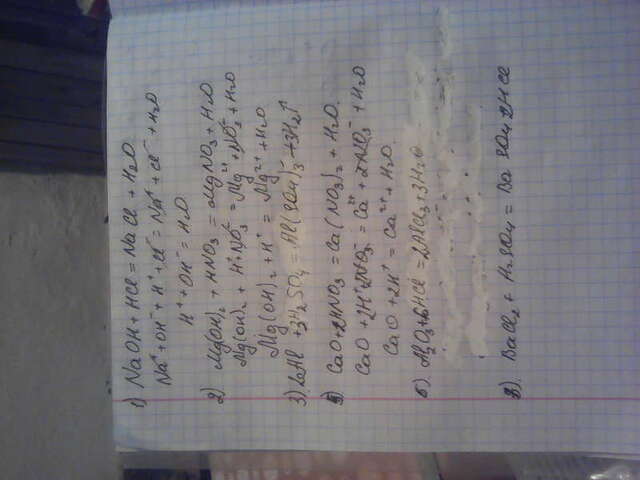 1) NaOH + HCl = NaCl + H₂O
Na⁺ + OH⁻ + H⁺ + Cl⁻ = Na⁺ + Cl⁻ + H₂O
H⁺ + OH⁻ = H₂O
2) Mg(OH)₂ + HNO₃ = MgNO₃ + H₂O
Mg(OH)₂ + H⁺NO₃⁻ = Mg²⁺ + NO₃⁻ + H₂O
Mg(OH)₂ + H⁺ = Mg²⁺ + H₂O
3) 2Al + 3H₂SO₄ = Al(SO₄)₃ + 3H₂↑
5) CaO + 2HNO₃ = Ca(NO₃)₂ + H₂O
CaO + 2H⁺ 2NO₃⁻ = Ca²⁺ + 2NO₃⁻ + H₂O
CaO + 2H⁺ = Ca²⁺ + H₂O
6). Al₂O₃ + 6HCl = 2AlCl₃ + 3H₂O
8). BaCl₂ + H₂SO₄ = BaSO₄ 2HCl